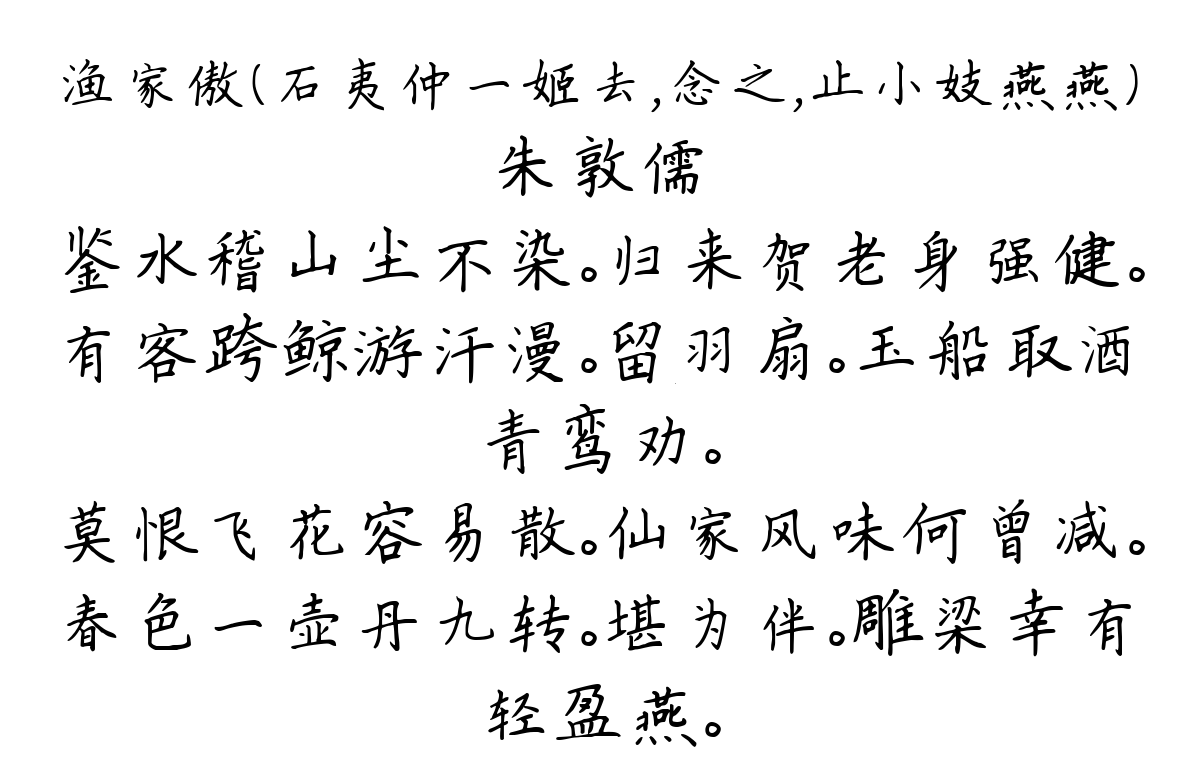 渔家傲(石夷仲一姬去,念之,止小妓燕燕)
朱敦儒
鉴水稽山尘不染。归来贺老身强健。
有客跨鲸游汗漫。留羽扇。玉船取酒
青鸾劝。
莫恨飞花容易散。仙家风味何曾减。
春色一壶丹九转。堪为伴。雕梁幸有
轻盈燕。